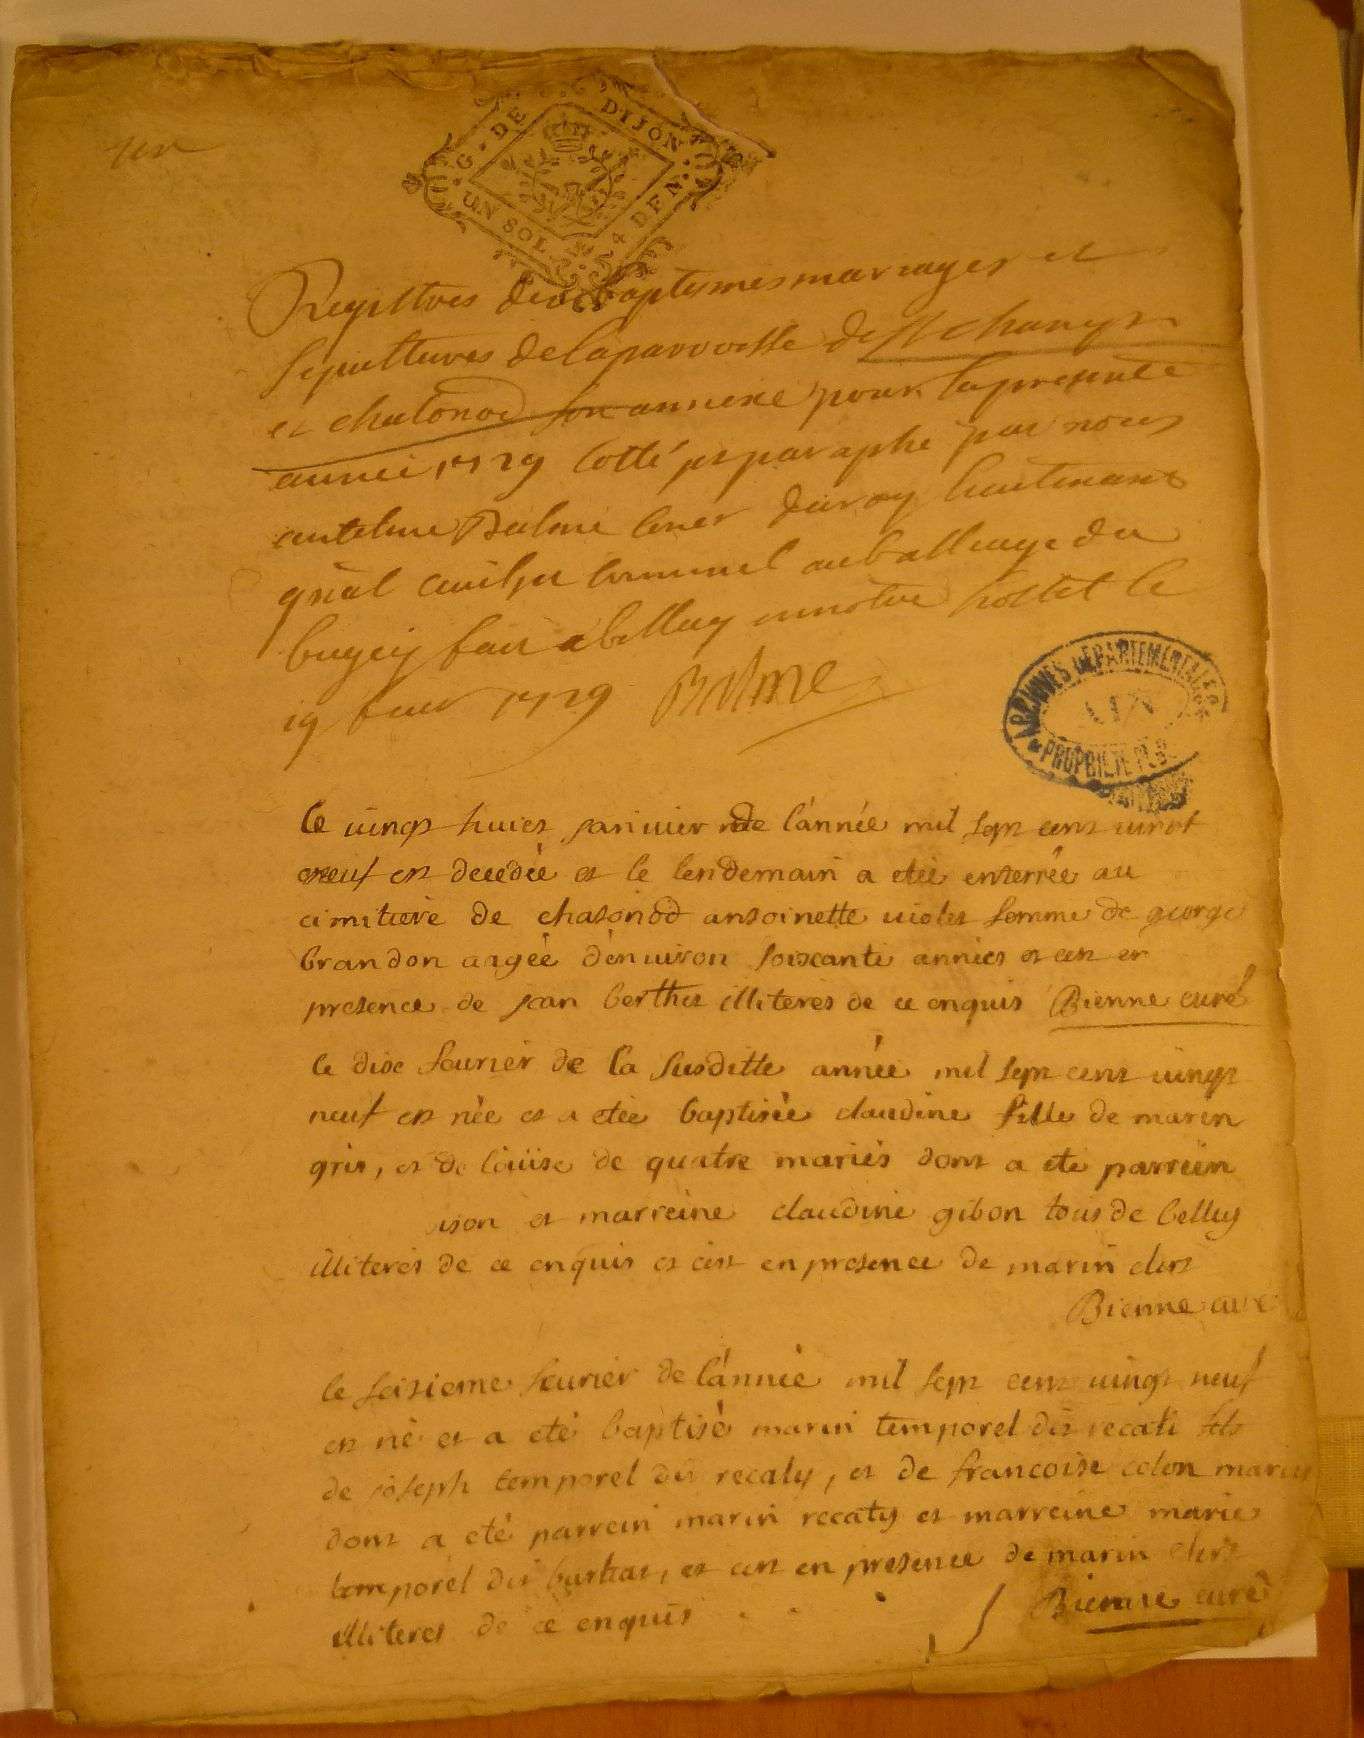 un
G. DE DIJON
UN SOL 4 DEN.
Registres des baptesmes mariages et
sepultures de la parroisse de St champt
et chatonod son annexe pour la presente
année 1729 cotté et paraphé par nous
antelme Balme coner du roy lieutenant
gnal civil et criminel au balliage du
bugey fait a belley en notre hostel le
19 1729 Balme
ARCHIVES DEPARTEMENTALES
AIN
PROPRIETE PUBLIQUE
le vingt huict janvier de l'année mil sept cent vingt
neuf est decedée et le lendemain a eteé enterrée au
cimitiere de chatonod antoinette violet femme de george
brandon aagée d'environ soixante années et cest en
presence de jean berthet illiteres de ce enquis Bienne curé
le dixe feurier de la susditte année mil sept cent vingt
neuf est née et a eteé baptisée claudine fille de marin
gris, et de loüise de quatre mariés dont a eté parrein
et marreine claudine gibon tous de belley
illiterés de ce enquis et cest en presence de marin clert
Bienne curé
le seisieme feurier de l'année mil sept cent vingt neuf
est né et a eté baptisé marin temporel dit recati fils
de joseph temporel dit recaty, et de francoise colon mariés
dont a eté parrein marin recaty et marreine marie
temporel dit , et cest en presence de marin clert
illiteres de ce enquis Bienne curé